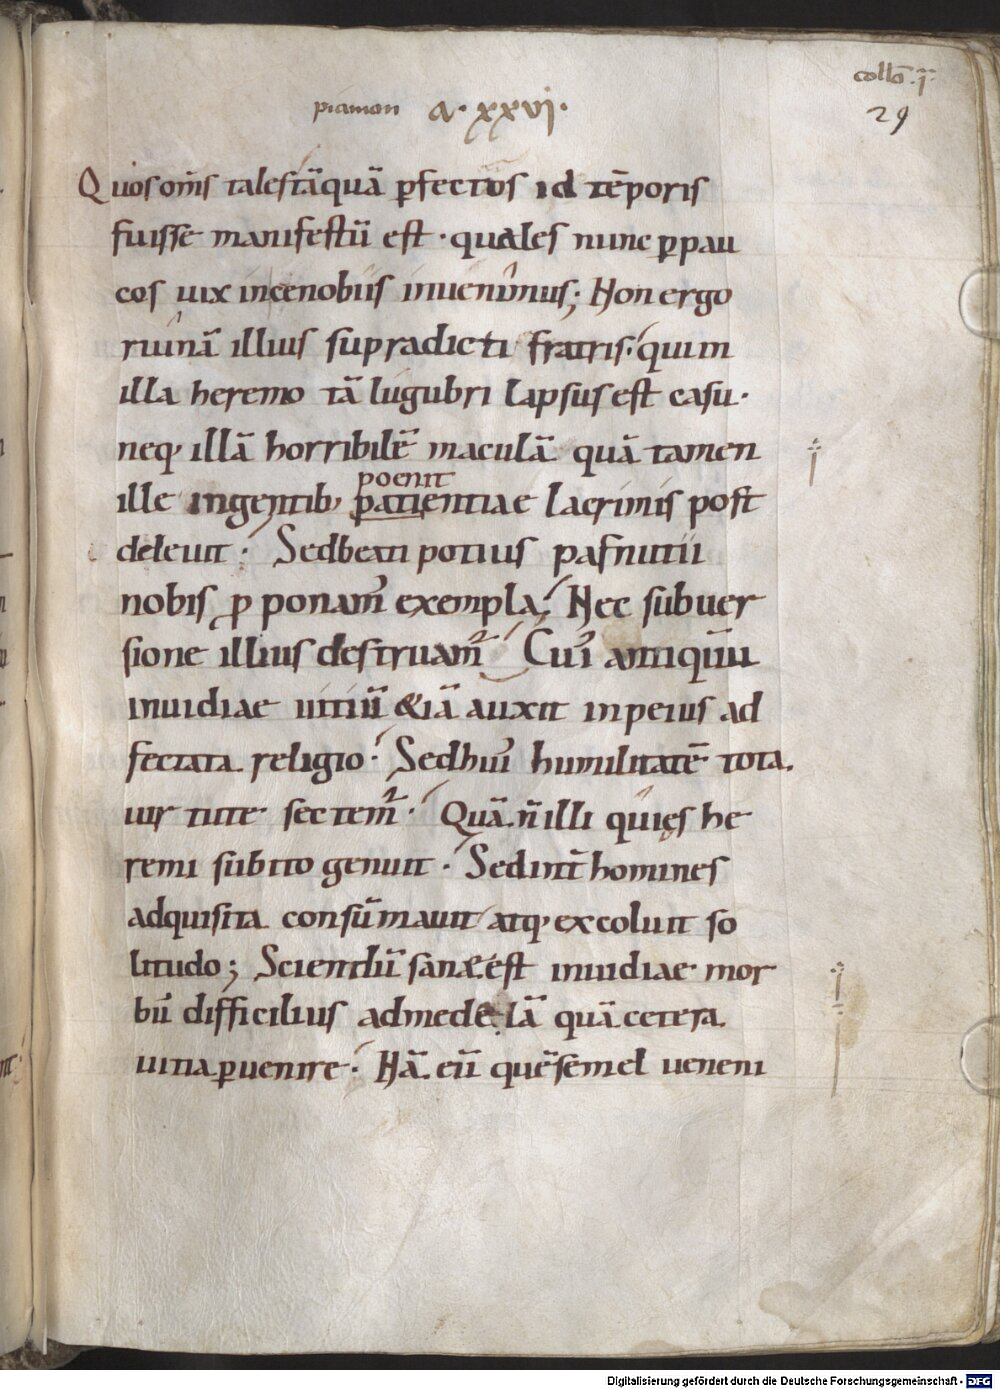 collō .ī.
29
piamon a. xxvi.
Quos om̄s tales tāquā ꝑfectos id tēporis
fuisse manifestū est · quales nunc ꝑpau
cos uix incenobiis inuenimus; Non ergo
ruinā illius supradicti fratris. qui in
illa heremo tā lugubri lapsus est casu.
neq; illā horribilē maculā quā tamen
poenit
ille ingentib; patientiae lacrimis post
deleuit · Sed beati potius pafnutii
nobis ꝓponam̄ exempla; Nec subuer
sione illius destruam̄ Cui antiquū
inuidiae uitiū &iā auxit inpeius ad
fectata religio · Sed hui humilitatē tota
uirtute sectem̄ · Quā n̄ illi quięs he
remi subito genuit · Sed int̄ homines
adquisita consūmauit atq; excoluit so
litudo; Sciendū sane ē est inuidiae mor
bū difficilius admedelā quā cetera
uitia ꝑuenire · Nā eū quē semel ueneni
Digitalisierung gefördert durch die Deutsche Forschungsgemeinschaft - DFG